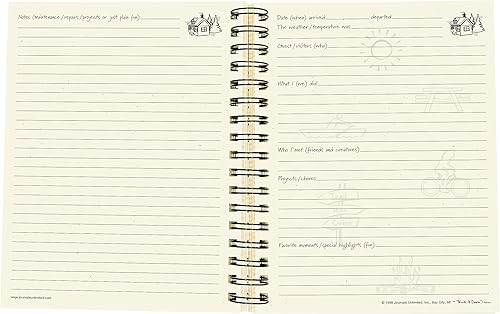 Notes (maintenance/repairs/projects or just plain fun)
www.journalsunlimited.com
Date (when) arrived departed
The weather/temperature was
Guest/visitors (who)
What I (we) did
Who I met (friends and creatures)
Projects/chores
Trail
Favorite moments/special highlights (fun)
© 1998 Journals Unlimited, Inc., Bay City, MI "Write it Down!" Series